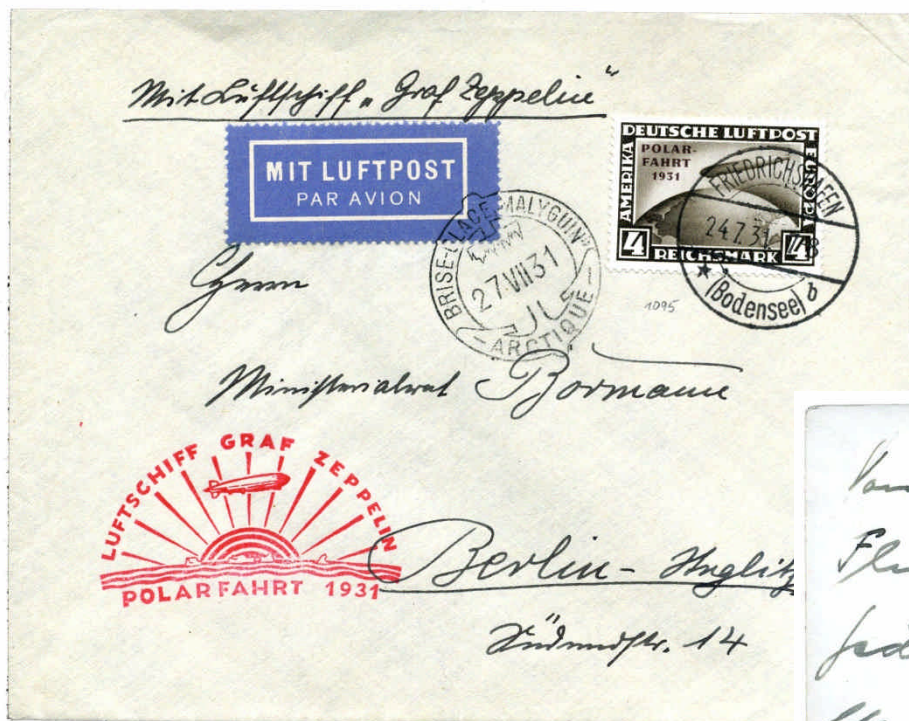 Mit Luftschiff „Graf Zeppelin“
MIT LUFTPOST
PAR AVION
DEUTSCHE LUFTPOST
AMERIKA
EUROPA
POLAR-
FAHRT
1931
4 4
REICHSMARK
FRIEDRICHSHAFEN
24.7.31
(Bodensee) b
BRISE-GLACE "MALYGUIN"
27.VII 31
ARCTIQUE
1095
Herrn
Ministerialrat Bormann
LUFTSCHIFF GRAF ZEPPELIN
POLARFAHRT 1931
Berlin - Steglitz
Südendstr. 14